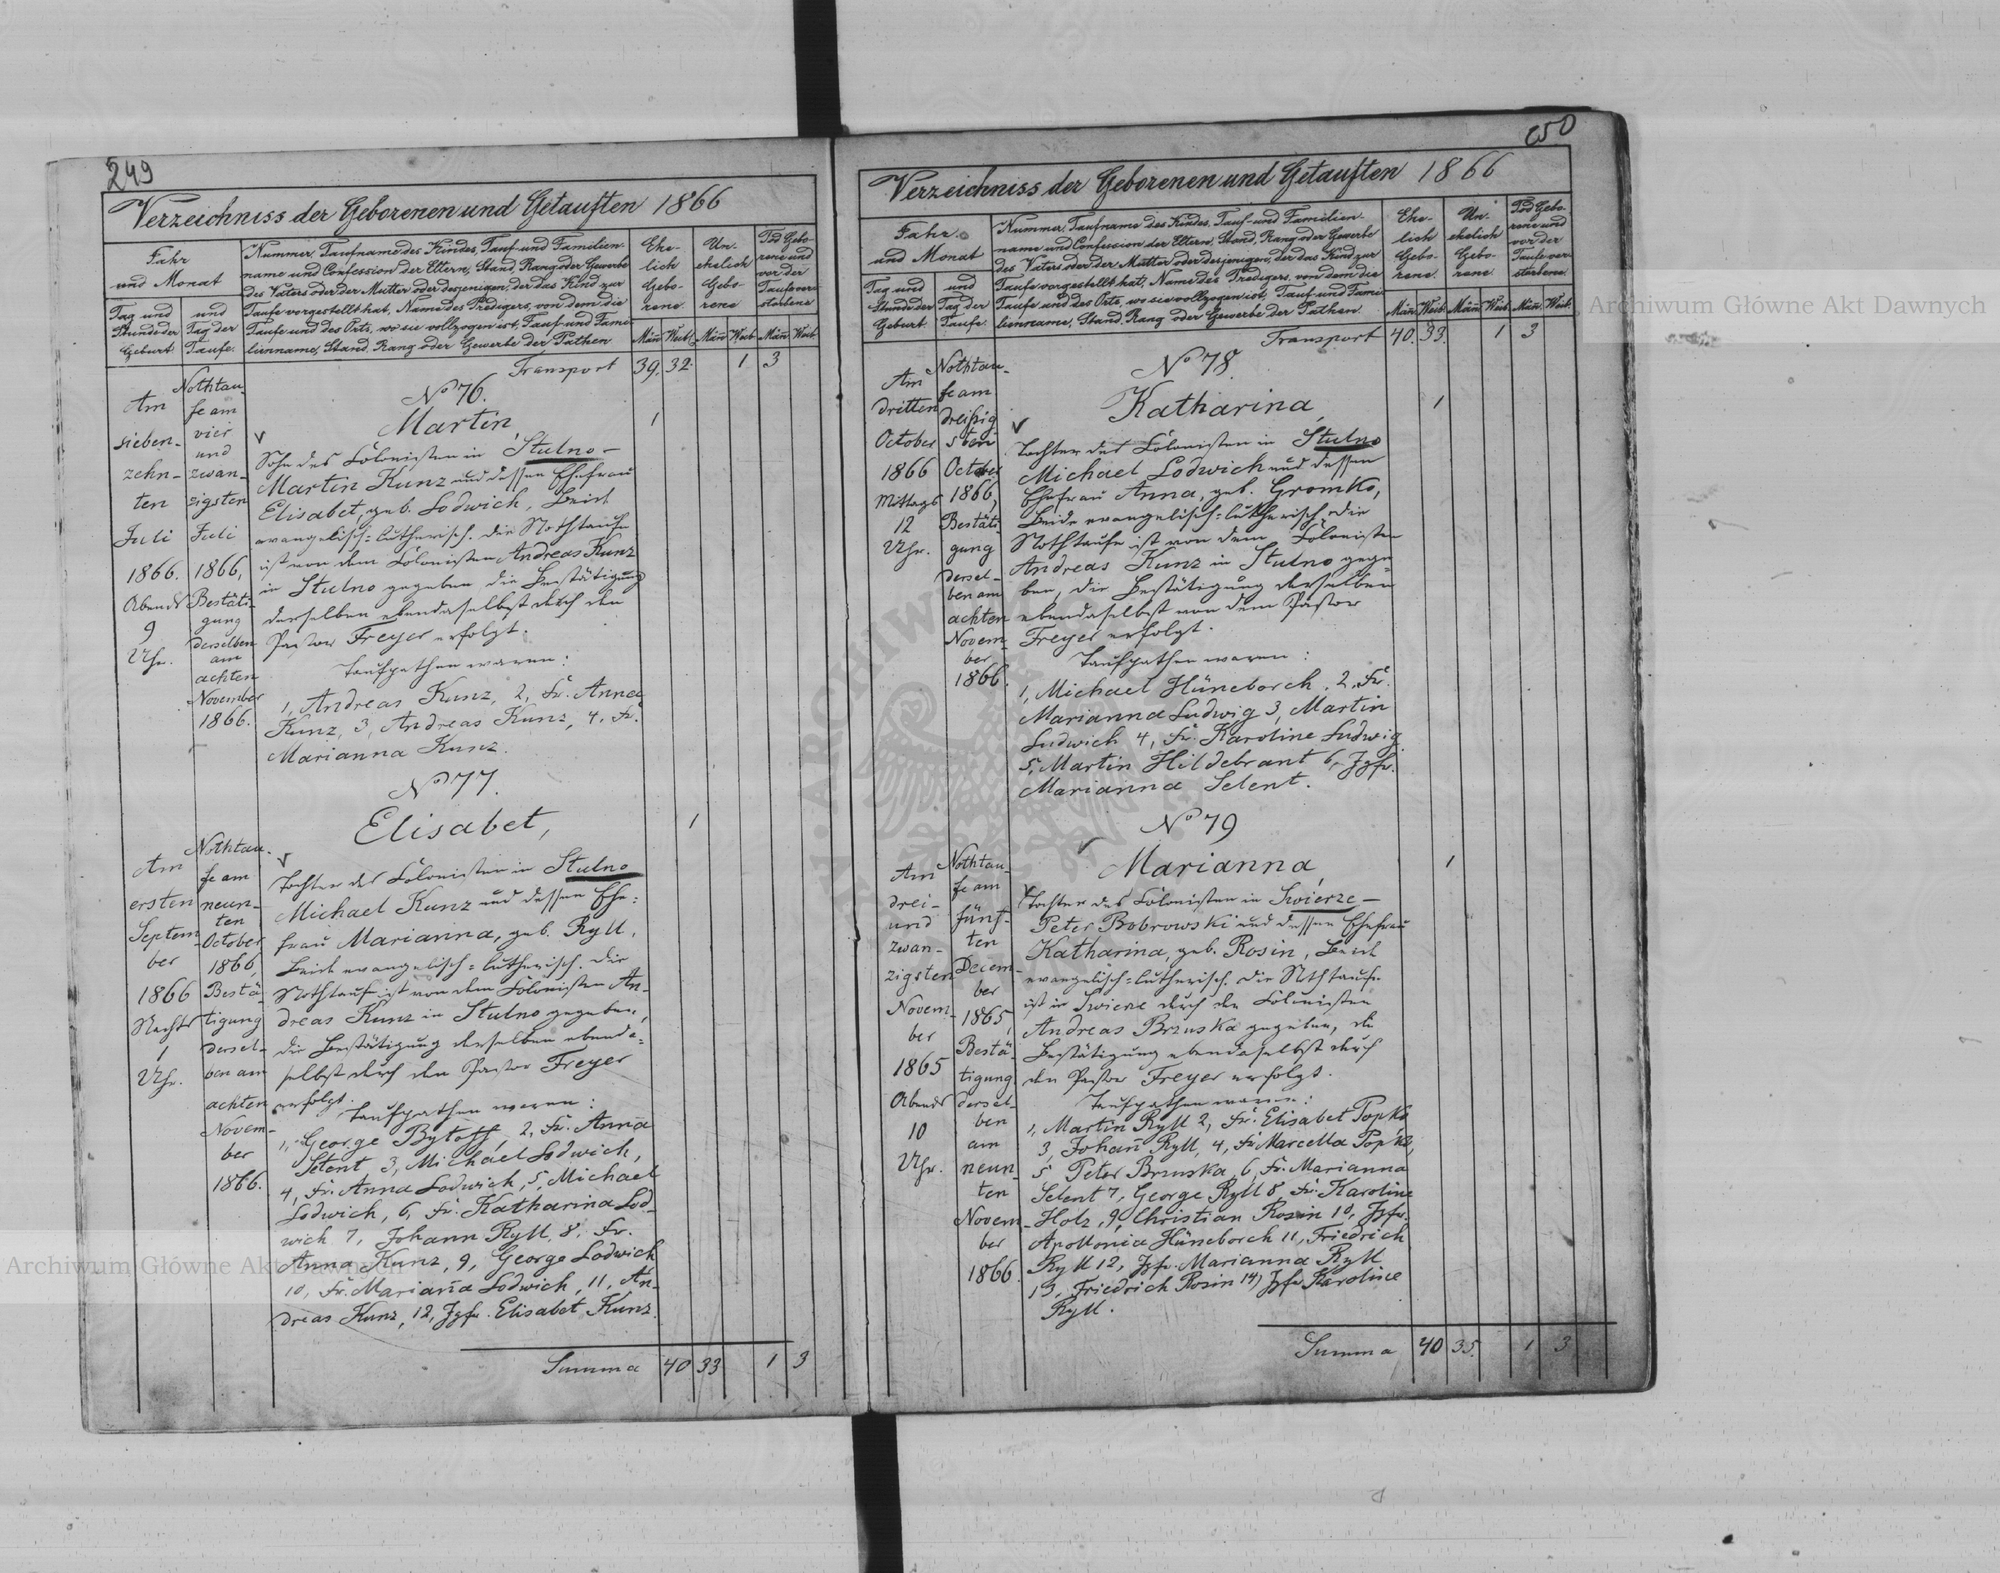 249
Verzeichniss der Geborenen und Getauften 1866
Jahr
und Monat
Tag und
Stunde der
Geburt
und
Tag der
Taufe.
Nummer, Taufname des Kindes, Tauf- und Familien-
name und Confession der Eltern, Stand, Rang oder Gewerbe
des Vaters oder der Mutter oder desjenigen, der das Kind zur
Taufe vorgestellt hat, Name des Predigers, von dem die
Taufe und des Orts, wo sie vollzogen ist, Tauf- und Fami-
lienname, Stand, Rang oder Gewerbe der Pathen
Ehe-
lich
Gebo-
rene
Un-
ehelich
Gebo-
rene
Tod Gebo-
rene und
vor der
Taufe ver-
storbene
Män̄ Weib. Män̄ Weib Män̄ Weib.
Transport 39. 32. 1 3
Am
sieben-
zehn-
ten
Juli
1866.
Abends
9
Uhr.
Nothtau-
fe am
vier
und
zwan-
zigsten
Juli
1866,
Bestäti-
gung
derselben
am
achten
November
1866.
No 76.
Martin, 1
Sohn des Colonisten in Stulno –
Martin Kunz und dessen Ehefrau
Elisabet, geb. Lodwich, Beide
evangelisch=lutherisch. Die Nothtaufe
ist von dem Colonisten Andreas Kunz
in Stulno gegeben die Bestätigung
derselben ebendaselbst durch den
Pastor Freyer erfolgt.
Taufpathen waren:
1, Andreas Kunz, 2, Fr. Anna
Kunz, 3, Andreas Kunz, 4, Fr.
Marianna Kunz.
No 77.
Am
ersten
Septem-
ber
1866
Nachts
1
Uhr.
Nothtau-
fe am
neun-
ten
October
1866,
Bestä-
tigung
dersel-
ben am
achten
Novem-
ber
1866.
Elisabet, 1
Tochter des Colonisten in Stulno
Michael Kunz und dessen Ehe=
frau Marianna, geb. Ryll,
Beide evangelisch=lutherisch. Die
Nothtaufe ist von dem Colonisten An-
dreas Kunz in Stulno gegeben,
die Bestätigung derselben ebenda=
selbst durch den Pastor Freyer
erfolgt.
Taufpathen waren:
1, George Bytoff, 2, Fr. Anna
Selent 3, Michael Lodwich,
4, Fr. Anna Lodwich, 5, Michael
Lodwich, 6, Fr. Katharina Lod-
wich 7, Johann Ryll, 8, Fr.
Anna Kunz, 9, George Lodwich
10, Fr. Marian̄a Lodwich, 11, An-
dreas Kunz, 12, Jgfr. Elisabet Kunz
Summa 40 33 1 3
250
Verzeichniss der Geborenen und Getauften 1866
Jahr
und Monat
Tag und
Stunde der
Geburt
und
Tag der
Taufe.
Nummer, Taufname des Kindes, Tauf- und Familien-
name und Confession der Eltern, Stand, Rang oder Gewerbe
des Vaters oder der Mutter oder desjenigen, der das Kind zur
Taufe vorgestellt hat, Name des Predigers, von dem die
Taufe und des Orts, wo sie vollzogen ist, Tauf- und Fami-
lienname, Stand, Rang oder Gewerbe der Pathen.
Ehe-
lich
Gebo-
rene
Un-
ehelich
Gebo-
rene
Tod Gebo-
rene und
vor der
Taufe ver-
storbene
Män̄ Weib. Män̄ Weib Män̄ Weib.
Transport 40. 33. 1 3
Am
dritten
October
1866
Mittags
12
Uhr.
Nothtau-
fe am
dreißig
sten
October
1866,
Bestäti-
gung
dersel-
ben am
achten
Novem-
ber
1866.
No 78.
Katharina, 1
Tochter des Colonisten in Stulno
Michael Lodwich und dessen
Ehefrau Anna, geb. Gromko,
Beide evangelisch=lutherisch. Die
Nothtaufe ist von dem Colonisten
Andreas Kunz in Stulno gege-
ben, die Bestätigung derselben
ebendaselbst von dem Pastor
Freyer erfolgt.
Taufpathen waren:
1, Michael Hüneborch, 2, Fr.
Marianna Ludwig 3, Martin
Ludwich 4, Fr. Karoline Ludwig
5, Martin Hildebrant 6, Jgfr.
Marianna Selent.
No 79
Am
drei-
und
zwan-
zigsten
Novem-
ber
1865
Abends
10
Uhr.
Nothtau-
fe am
fünf-
ten
Decem-
ber
1865,
Bestä-
tigung
dersel-
ben
am
neun-
ten
Novem-
ber
1866.
Marianna, 1
Tochter des Colonisten in Swierze –
Peter Bobrowski und dessen Ehefrau
Katharina, geb. Rosin, Beide
evangelisch=lutherisch. Die Nothtaufe
ist in Swierze durch den Colonisten
Andreas Brzuska gegeben, die
Bestätigung ebendaselbst durch
den Pastor Freyer erfolgt.
Taufpathen waren:
1, Martin Ryll 2, Fr. Elisabet Popko
3, Johan̄ Ryll, 4, Fr. Marcella Popko,
5 Peter Brzuska, 6, Fr. Marianna
Selent 7, George Ryll 8, Fr. Karoline
Holz, 9, Christian Rosin 10, Jgfr.
Apollonia Hüneborch 11, Friedrich
Ryll 12, Jgfr. Marianna Ryll
13, Friedrich Rosin 14) Jgfr Karoline
Ryll.
Summa 40 35. 1 3
Archiwum Główne Akt Dawnych
Archiwum Główne Akt Dawnych